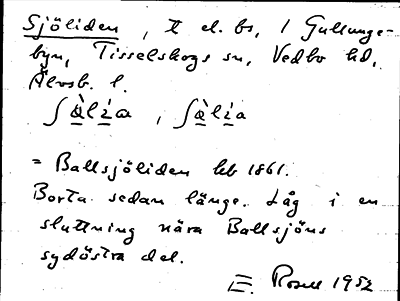 Sjöliden, tt el. bs, i Gullunge-
byn, Tisselskogs sn, Vedbo hd,
Älvsb. l.
ʃàlía, ʃàlía
= Ballsjöliden hb 1861.
Borta sedan länge. Låg i en
sluttning nära Ballsjöns
sydöstra del.
Rosell 1952